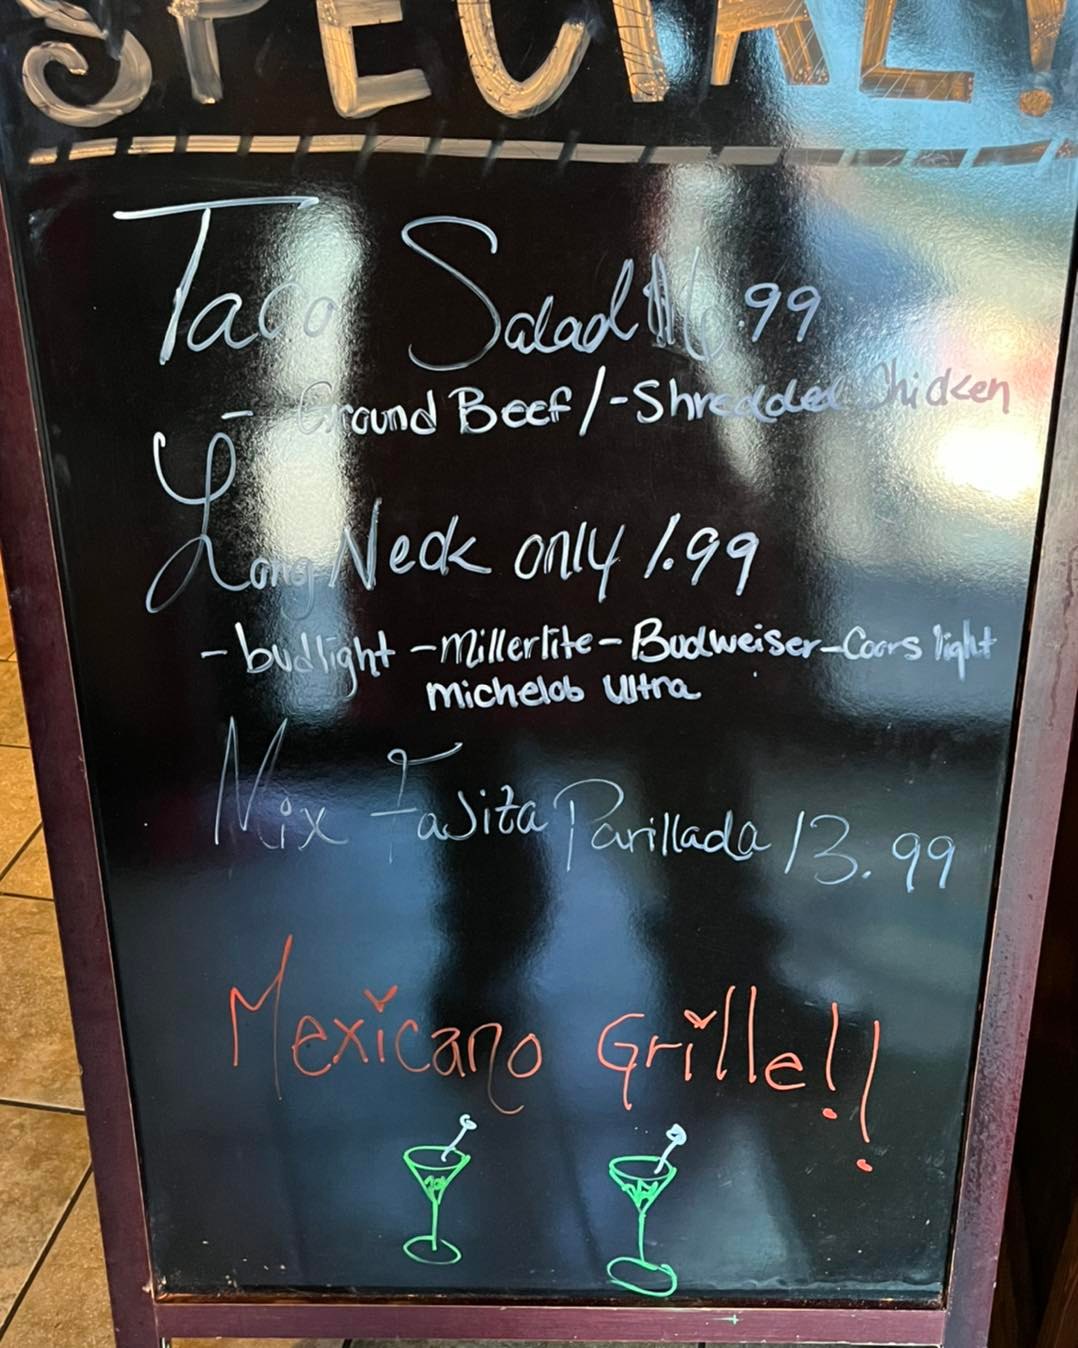 SPECIAL!
Taco Salad $6.99
- Ground Beef/-Shredded Chicken
Long Neck only 1.99
- budlight -Millerlite-Budweiser-Coors light
michelob Ultra
Mix Fajita Parillada 13.99
Mexicano Grille!!